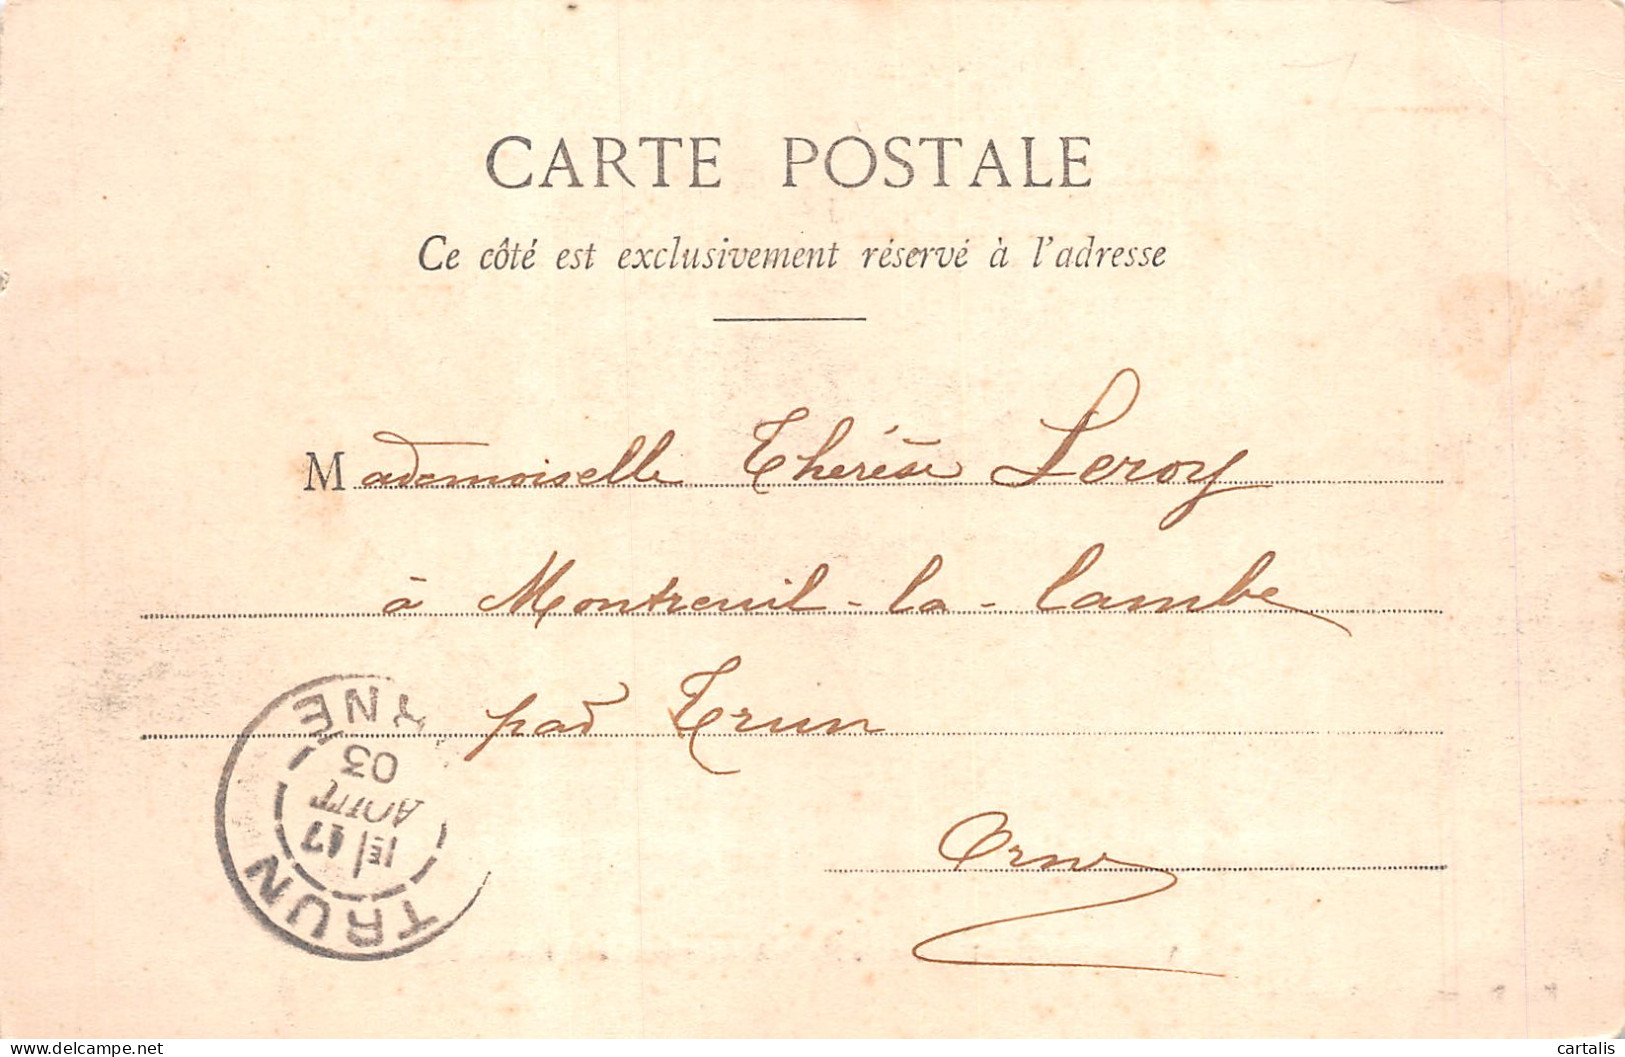 CARTE POSTALE
Ce côté est exclusivement réservé à l'adresse
Mademoiselle Thérèse Leroy
à Montreuil-la-Cambe
par Trun
Orne
TRUN
17
AOUT
03
ORNE
delcampe.net
cartalis